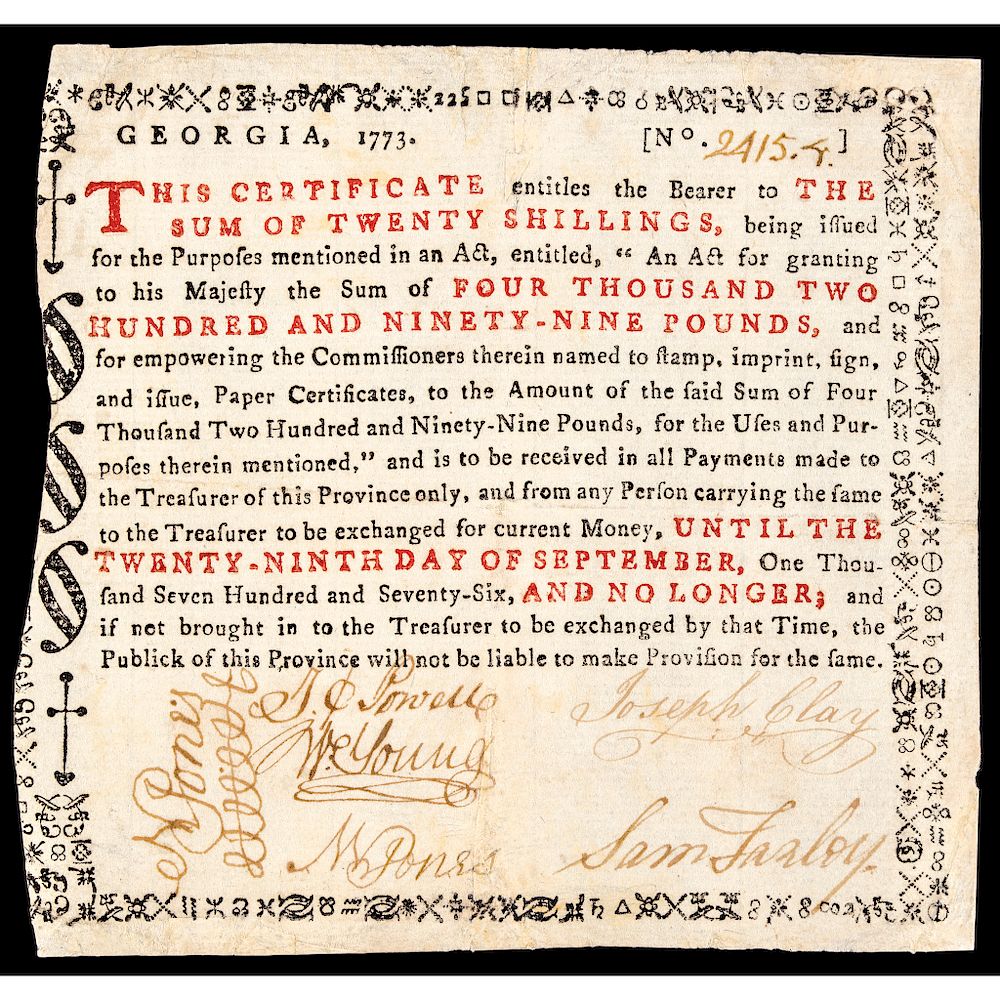 GEORGIA, 1773. [No. 2415.4.]
THIS CERTIFICATE entitles the Bearer to THE
SUM OF TWENTY SHILLINGS, being iſſued
for the Purpoſes mentioned in an Act, entitled, “ An Act for granting
to his Majeſty the Sum of FOUR THOUSAND TWO
HUNDRED AND NINETY-NINE POUNDS, and
for empowering the Commiſſioners therein named to ſtamp, imprint, ſign,
and iſſue, Paper Certificates, to the Amount of the ſaid Sum of Four
Thouſand Two Hundred and Ninety-Nine Pounds, for the Uſes and Pur-
poſes therein mentioned,” and is to be received in all Payments made to
the Treaſurer of this Province only, and from any Perſon carrying the ſame
to the Treaſurer to be exchanged for current Money, UNTIL THE
TWENTY-NINTH DAY OF SEPTEMBER, One Thou-
ſand Seven Hundred and Seventy-Six, AND NO LONGER; and
if not brought in to the Treaſurer to be exchanged by that Time, the
Publick of this Province will not be liable to make Proviſion for the ſame.
J. C. Powell
Joseph Clay
Wm. Young
N Jones
Sam Farley.